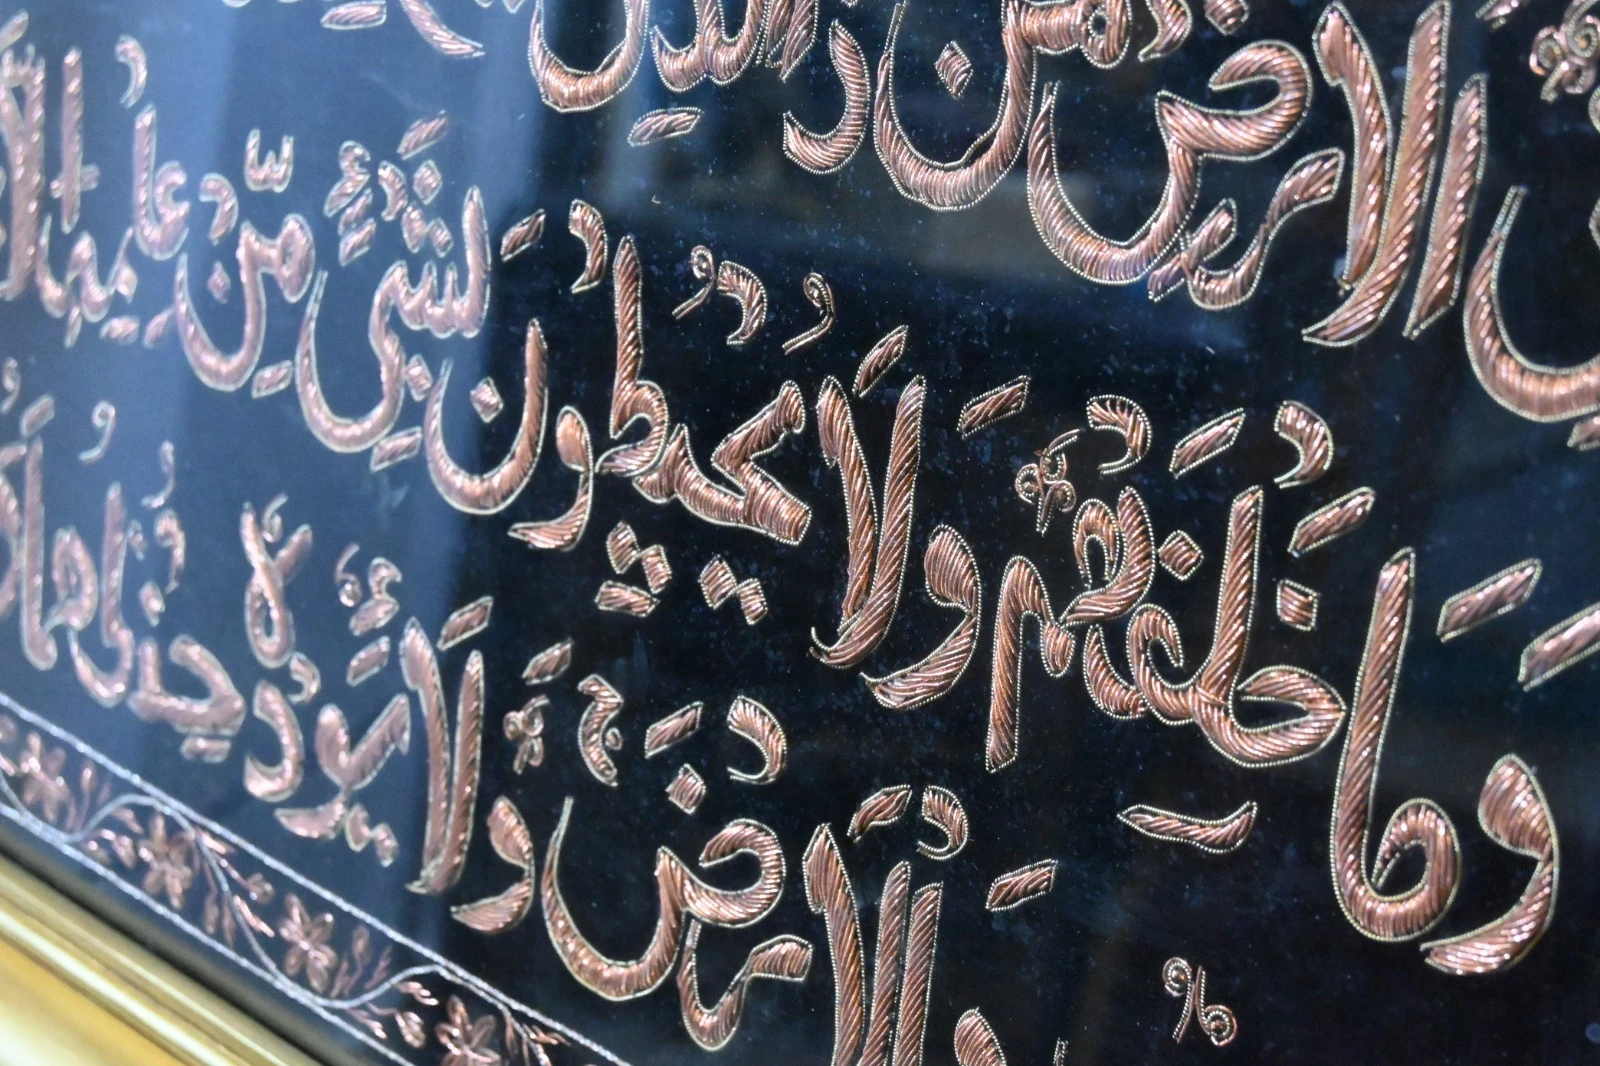 الْاَرْضِ مَنْ ذَا الَّذِي
وَمَا خَلْفَهُمْ وَلَا يُحِيطُونَ بِشَيْءٍ مِّنْ عِلْمِهٖ اِلَّا
وَالْاَرْضَ وَلَا يَؤُدُهٗ حِفْظُهُمَا